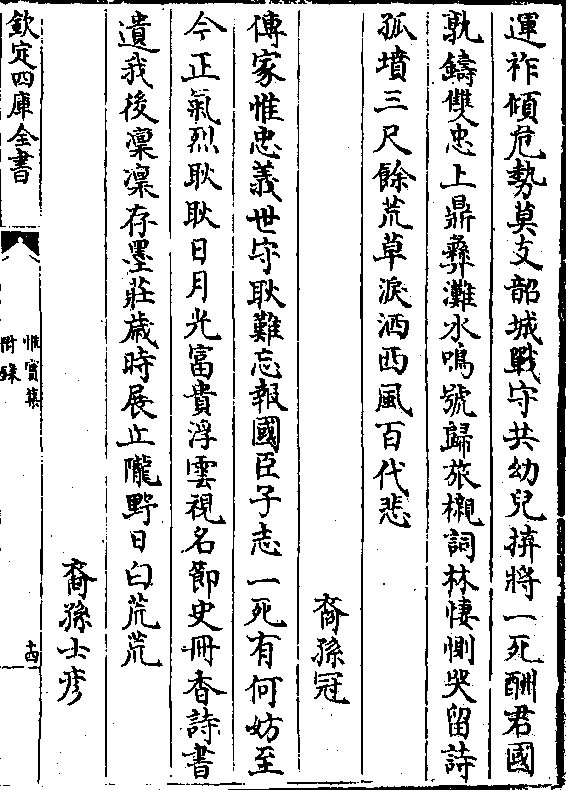 運祚傾危勢莫支韶城戰守共幼兒拚將一死酬君國
孰鑄雙忠上鼎彝灘水鳴號歸旅櫬詞林悽惻哭留詩
孤墳三尺餘荒草淚洒西風百代悲
裔孫冠
傳家惟忠義世守耿難忘報國臣子志一死有何妨至
今正氣烈耿耿日月光富貴浮雲視名節史冊香詩書
遺我後凜凜存墨莊歲時展丘隴野日白荒荒
裔孫士彦
欽定四庫全書
惟實集
附錄
十四